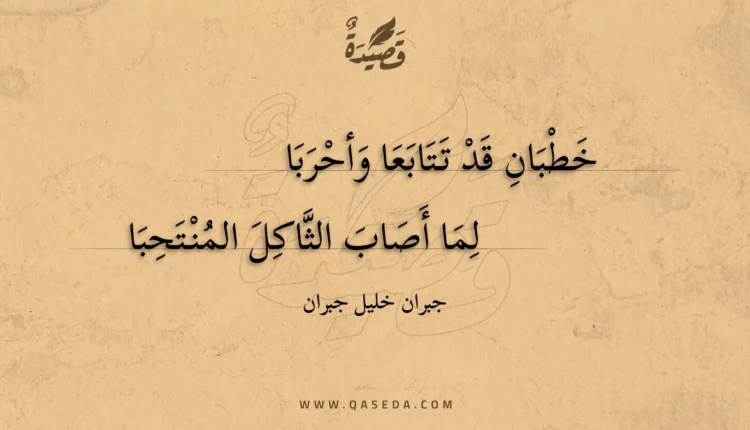 قَصِيدَةٌ
خَطْبَانِ قَدْ تَتَابَعَا وَأحْرَبَا
لِمَا أَصَابَ الثَّاكِلَ المُنْتَحِبَا
جبران خليل جبران
WWW.QASEDA.COM